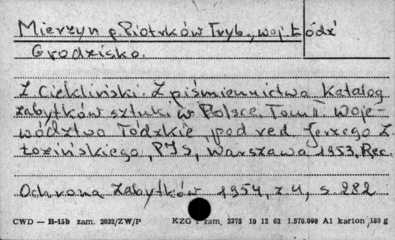 Mierzyn p. Piotrków Tryb., woj. Łódź
Grodzisko.
Z Ciekliński: Z piśmiennictwa Katalog
zabytków sztuki w Polsce. Tom I Woje-
wództwo Łódzkie pod red Jerzego Z.
Łozińskiego, PIS, Warszawa 1953, Rec.
Ochrona Zabytków 1954, z 4, s 282
CWD — B-15b zam. 2832/ZW/P KZG 1 zam. 2375 19 12 62 1.570.000 A1 karton 189 g